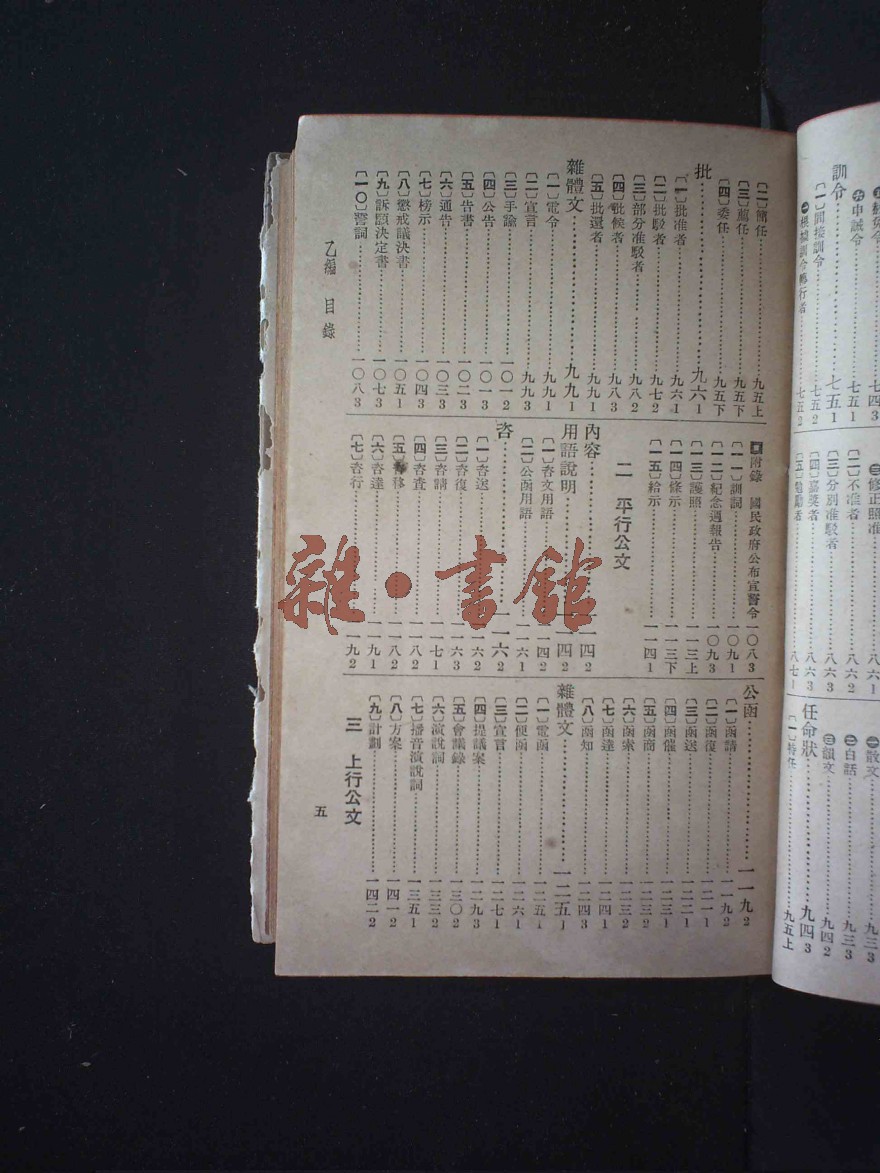 訓令……七五1
〔一〕間接訓令……七五2
〔二〕不准者……八六2
〔三〕分別准駁者……八六3
〔四〕嘉獎者……八六3
任命狀……九四3
〔一〕特任……九五上
〔二〕簡任……九五上
〔三〕薦任……九五下
〔四〕委任……九五下
批……九六1
〔一〕批准者……九六1
〔二〕批駁者……九七2
〔三〕部分准駁者……九八2
〔四〕批候者……九八3
〔五〕批還者……九九1
雜體文……九九1
〔一〕電令……九九1
〔二〕宣言……九九3
〔三〕手諭……一〇一2
〔四〕公告……一〇一3
〔五〕告書……一〇二3
〔六〕通告……一〇三3
〔七〕榜示……一〇四3
〔八〕懲戒議決書……一〇五1
〔九〕訴願決定書……一〇七3
〔一〇〕誓詞……一〇八3
■附錄 國民政府公布宣誓令一〇八3
〔一一〕訓詞……一〇九1
〔一二〕紀念週報告……一〇九3
〔一三〕護照……一一三上
〔一四〕條示……一一三下
〔一五〕給示……一一四1
二 平行公文
內容……一一四2
用語說明……一一四2
〔一〕咨文用語……一一四2
〔二〕公函用語……一一六1
咨……一一六2
〔一〕咨送……一一六2
〔二〕咨復……一一六3
〔三〕咨請……一一七1
〔四〕咨查……一一八2
〔五〕咨移……一一八2
〔六〕咨達……一一九1
〔七〕咨行……一一九2
公函……一一九2
〔一〕函請……一一九2
〔二〕函復……一二一1
〔三〕函送……一二二1
〔四〕函催……一二三1
〔五〕函商……一二三2
〔六〕函索……一二三2
〔七〕函達……一二四1
〔八〕函知……一二四3
雜體文……一二五1
〔一〕電函……一二五1
〔二〕便函……一二六1
〔三〕宣言……一二七1
〔四〕提議案……一二九3
〔五〕會議錄……一三〇2
〔六〕演說詞……一三三2
〔七〕播音演說詞……一三五1
〔八〕方案……一四一2
〔九〕計劃……一四二2
三 上行公文
乙編 目錄
五
雜·書館